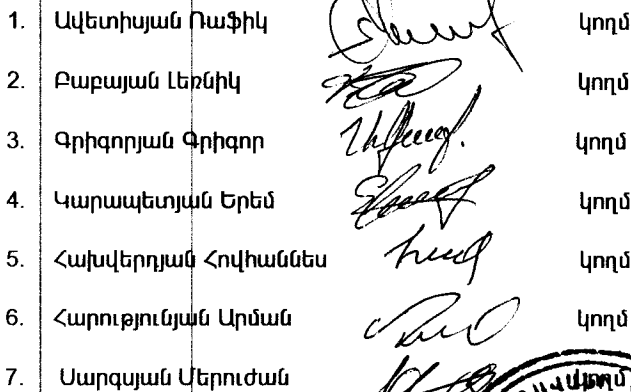 1. Ավետիսյան Ռաֆիկ կողմ
2. Բաբայան Լեռնիկ կողմ
3. Գրիգորյան Գրիգոր կողմ
4. Կարապետյան Երեմ կողմ
5. Հախվերդյան Հովհաննես կողմ
6. Հարությունյան Արման կողմ
7. Սարգսյան Մերուժան կողմ